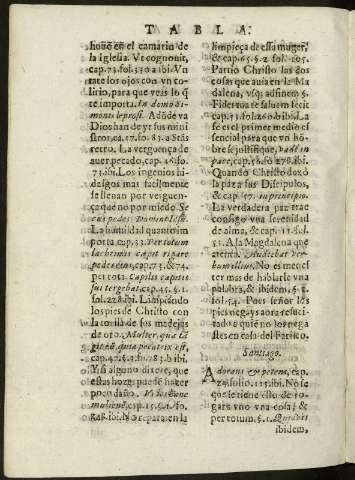 TABLA.
hõuȩ en el camarin de
la Iglesia. Vt cognouit,
cap. 73. fol. 330. a ibi. Vn
tate los ojos con vn co-
lirio, para que veas lo q̃
te importa. In domo Si-
monis leprosi. Adõde va
Dios han de yr sus mini
stros, ca. 17. fo. 83. a Stás
retro. La verguença de
auer pecado, cap. 16. fo.
73. ibi. Los ingenios hi-
dalgos mas facilmente
se lleuan por verguen-
ça que no por miedo. Se
cus pedes Domini Iesu.
La humildad quanto im
porta cap. 33. Per totum
lachrimis cæpit rigare
pedes eius, cap. 73. & 74.
per tota. Capillis capitis
sui tergebat, cap. 45. §. 1.
fol. 228. ibi. Limpiando
los pies de Christo con
la toalla de las madejas
de oro. Mulier, quæ tã
git eũ, quia peccatrix est,
cap. 47. §. 1. fo. 283. b ibi.
Y si alguno dixere, que
estas hozes puede hazer
poco daño.
cap. 15. §. 1. fo.
ibi. No repara en la
limpieça de essa muger,
& cap. 65. §. 2. fol. 105.
Partio Christo las dos
cosas que auia en la Ma
dalena, vsq; ad finem §.
Fides tua te saluam fecit
cap. 51. fol. 250. b ibi. La
fe es el primer medio es
sencial para que vn hõ-
bre se justifique, vade in
pace, cap. 56. fo. 278. ibi.
Quando Christo dexò
la paz a sus Discipulos,
& cap. 57. in principio.
La verdadera paz trae
consigo vna serenidad
de alma, & cap. 11. fol.
51. A la Magdalena que
acierta. Audiebat ver-
bum illius. No es menes
ter mas de hablarle vna
palabra, & ibidem, §. 2.
fol. 54. Pues señor los
pies negays aora resuci-
tado: s quiẽ no los nega
stes en casa del Fariseo.
Santiago.
Adorans & petens, cap.
25. folio. 115. ibi. No se
goze le tiene esso de ro-
garos vno vna cosa; &
per totum §. 1. Quid vis
ibidem,